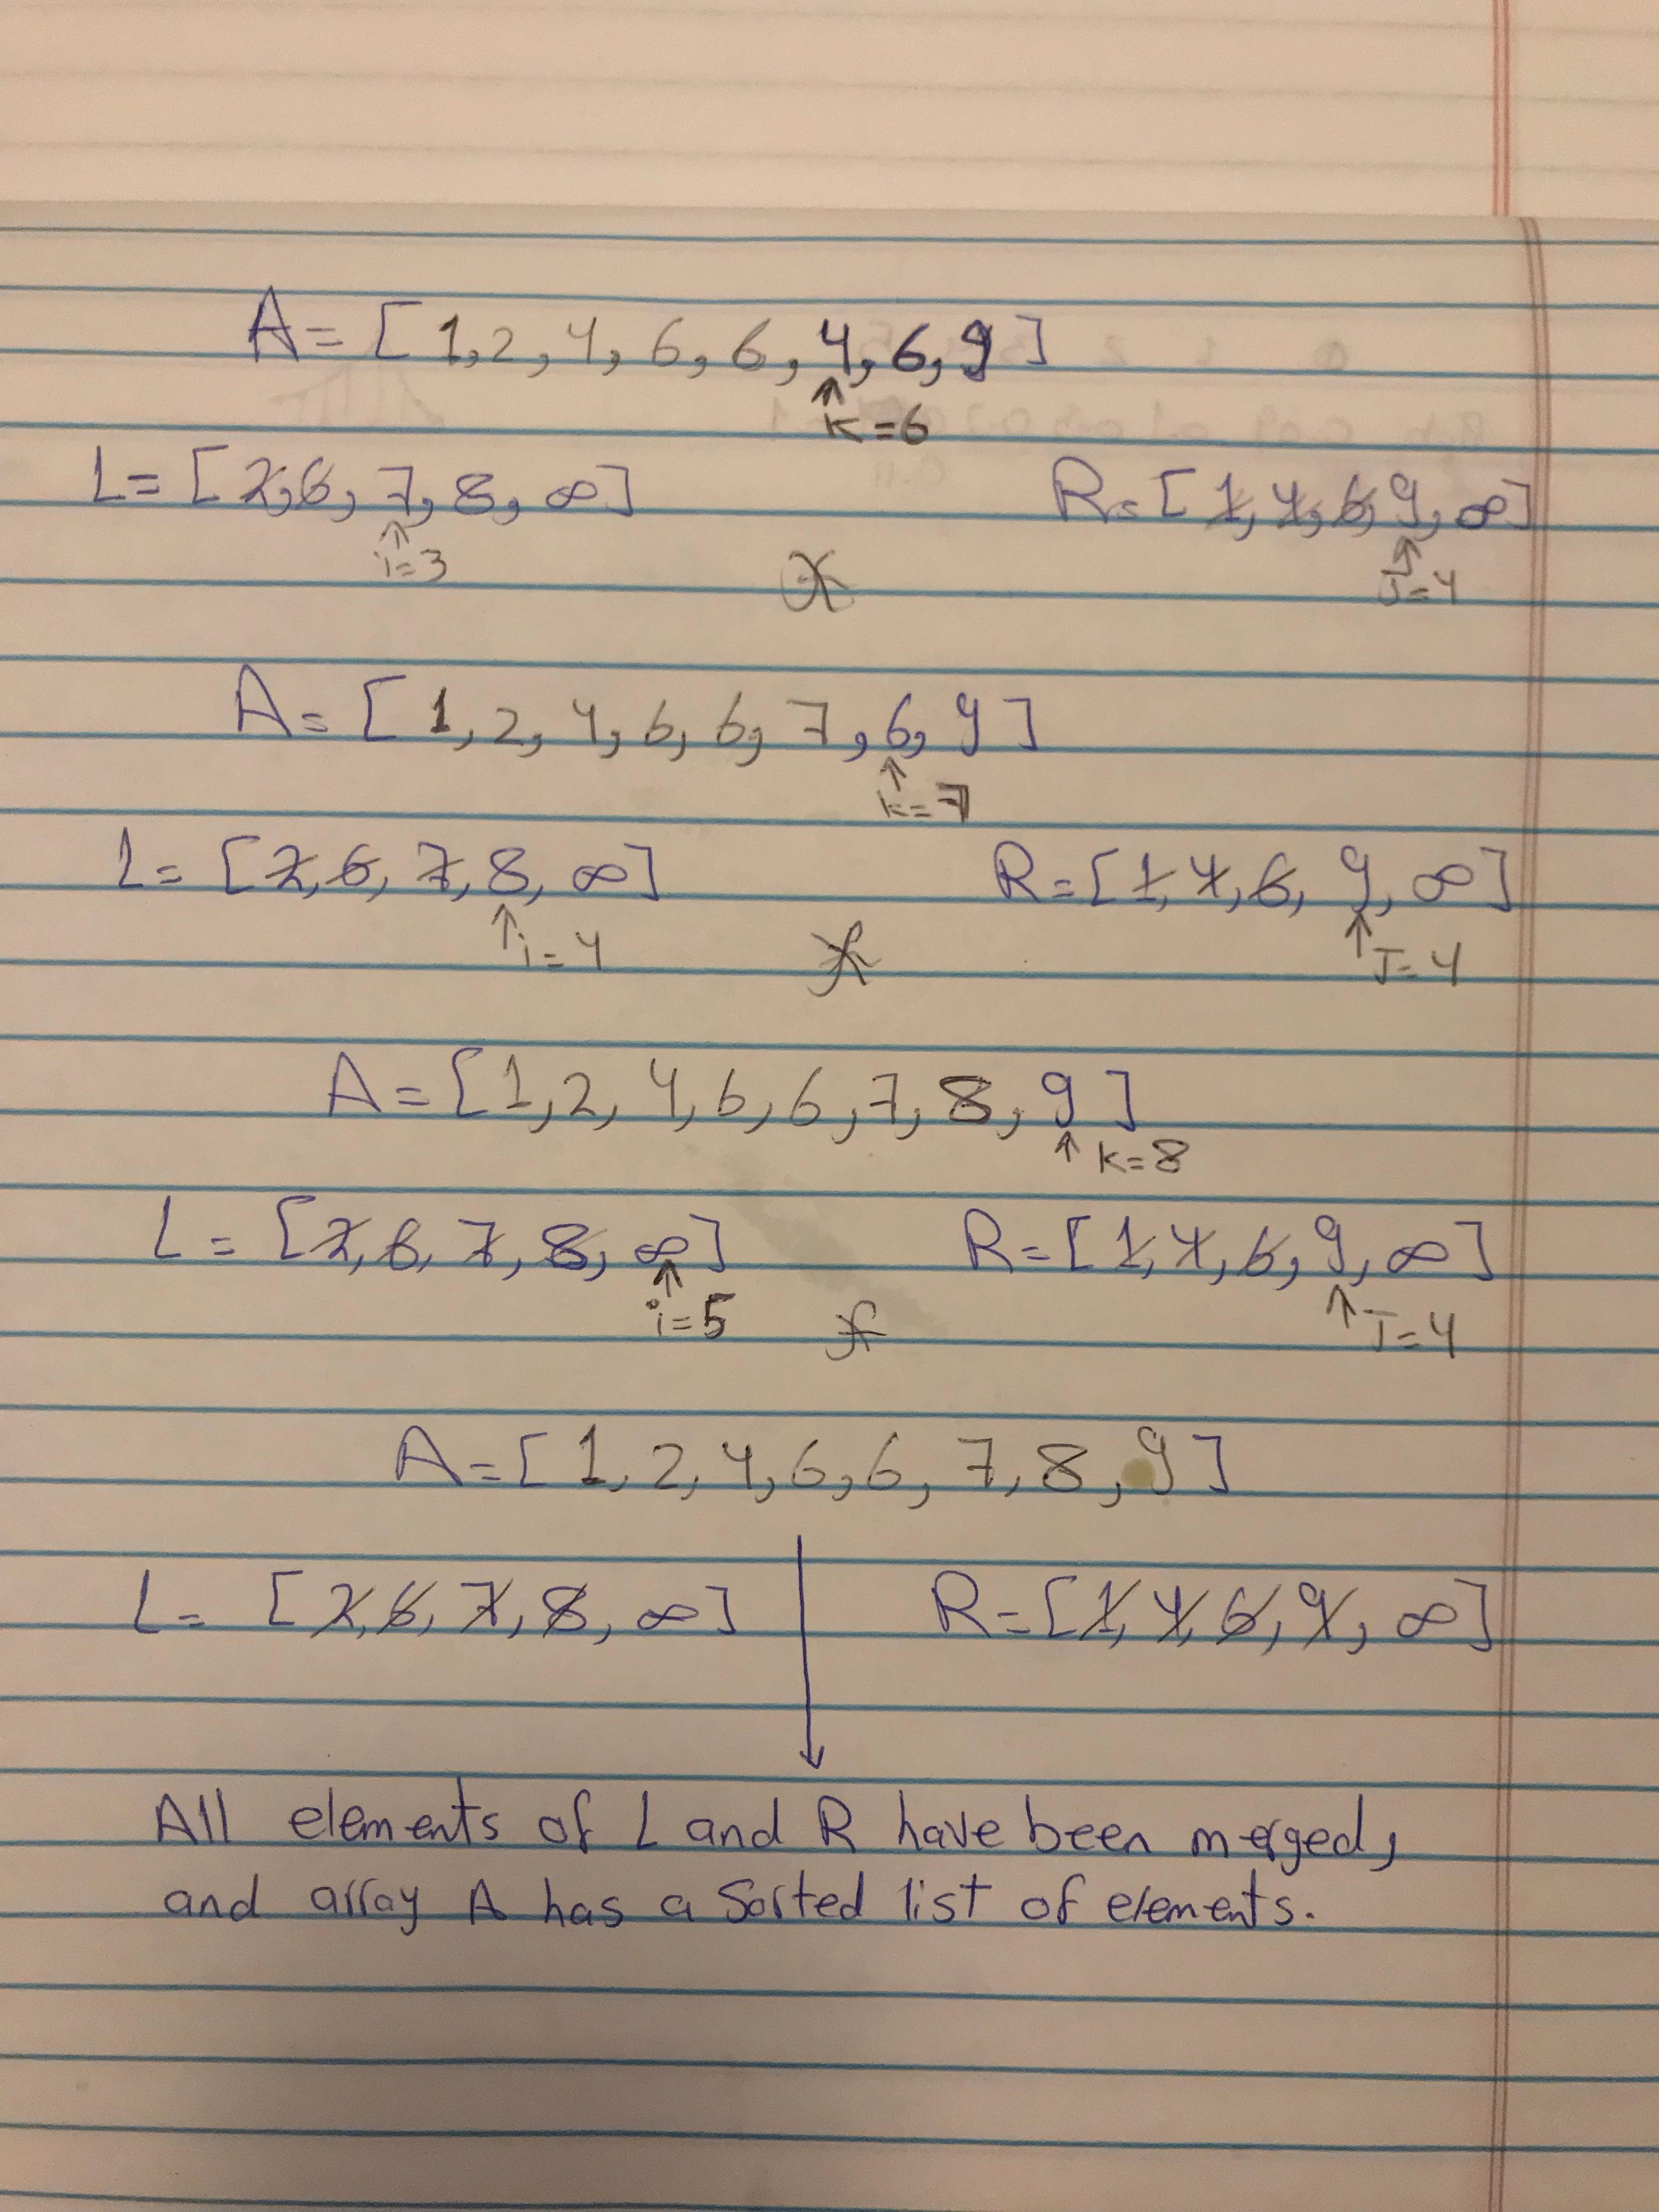 A = [ 1, 2, 4, 6, 6, 4, 6, 9 ]
↑
k = 6
L = [ 2, 6, 7, 8, ∞ ] R = [ 1, 4, 6, 9, ∞ ]
↑ ↑
i = 3 J = 4
A = [ 1, 2, 4, 6, 6, 7, 6, 9 ]
↑
k = 7
L = [ 2, 6, 7, 8, ∞ ] R = [ 1, 4, 6, 9, ∞ ]
↑ i = 4 ↑ J = 4
A = [ 1, 2, 4, 6, 6, 7, 8, 9 ]
↑ k = 8
L = [ 2, 6, 7, 8, ∞ ] R = [ 1, 4, 6, 9, ∞ ]
↑ ↑
i = 5 J = 4
A = [ 1, 2, 4, 6, 6, 7, 8, 9 ]
L = [ 2, 6, 7, 8, ∞ ] R = [ 1, 4, 6, 9, ∞ ]
All elements of L and R have been merged,
and array A has a sorted list of elements.